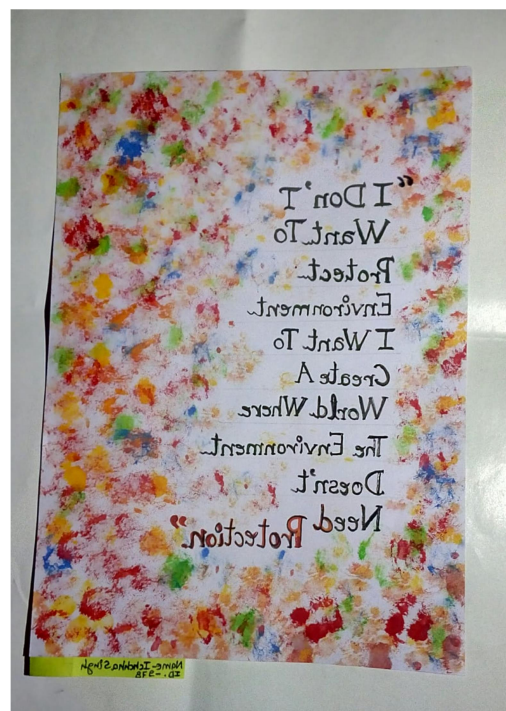 “I Don'T
Want To
Protect
Environment
I Want To
Create A
World Where
The Environment
Doesn't
Need Protection”
Name-
ID-